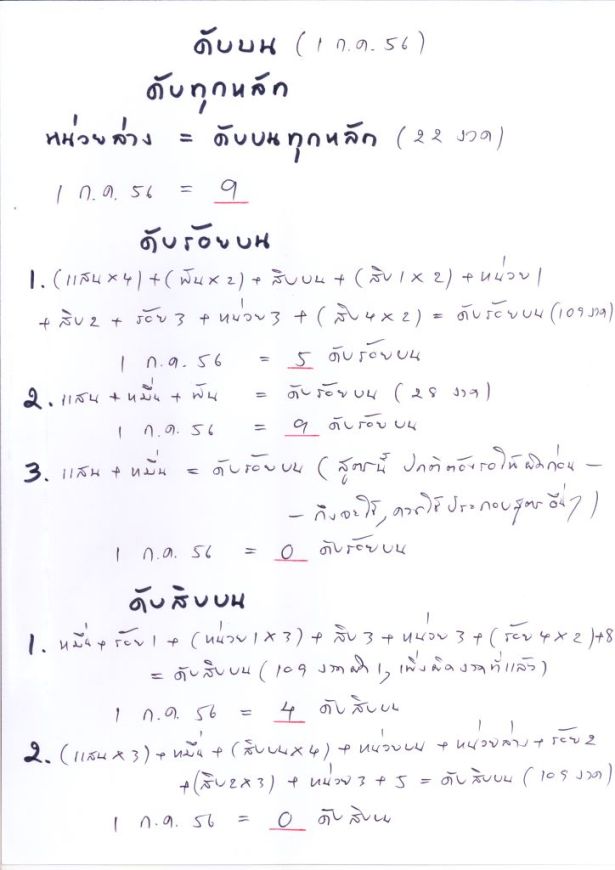 ดับบน (1 ก.ค. 56)
ดับทุกหลัก
หน่วยล่าง = ดับบนทุกหลัก (22 งวด)
1 ก.ค. 56 = 9
ดับร้อยบน
1. (แสน×4)+(พัน×2)+ สิบบน + (สิบ1×2) + หน่วย1
+ สิบ2 + ร้อย3 + หน่วย3 + (สิบ4×2) = ดับร้อยบน (109 งวด)
1 ก.ค. 56 = 5 ดับร้อยบน
2. แสน + หมื่น + พัน = ดับร้อยบน (28 งวด)
1 ก.ค. 56 = 9 ดับร้อยบน
3. แสน + หมื่น = ดับร้อยบน (สูตรนี้ ปกติต้องรอให้ผิดก่อน –
– ถึงจะใช้, ควรใช้ประกอบสูตรอื่นๆ)
1 ก.ค. 56 = 0 ดับร้อยบน
ดับสิบบน
1. หมื่น + ร้อย1 + (หน่วย1×3) + สิบ3 + หน่วย3 + (ร้อย4×2)+8
= ดับสิบบน (109 งวดผิด1, เพิ่งผิดงวดที่แล้ว)
1 ก.ค. 56 = 4 ดับสิบบน
2. (แสน×3)+หมื่น+(สิบบน×4) + หน่วยบน + หน่วยล่าง + ร้อย2
+(สิบ2×3) + หน่วย3 + 5 = ดับสิบบน (109 งวด)
1 ก.ค. 56 = 0 ดับสิบบน